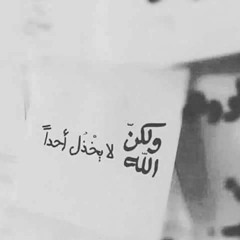 ولكنّ
الله لا يخْذُل أحداً